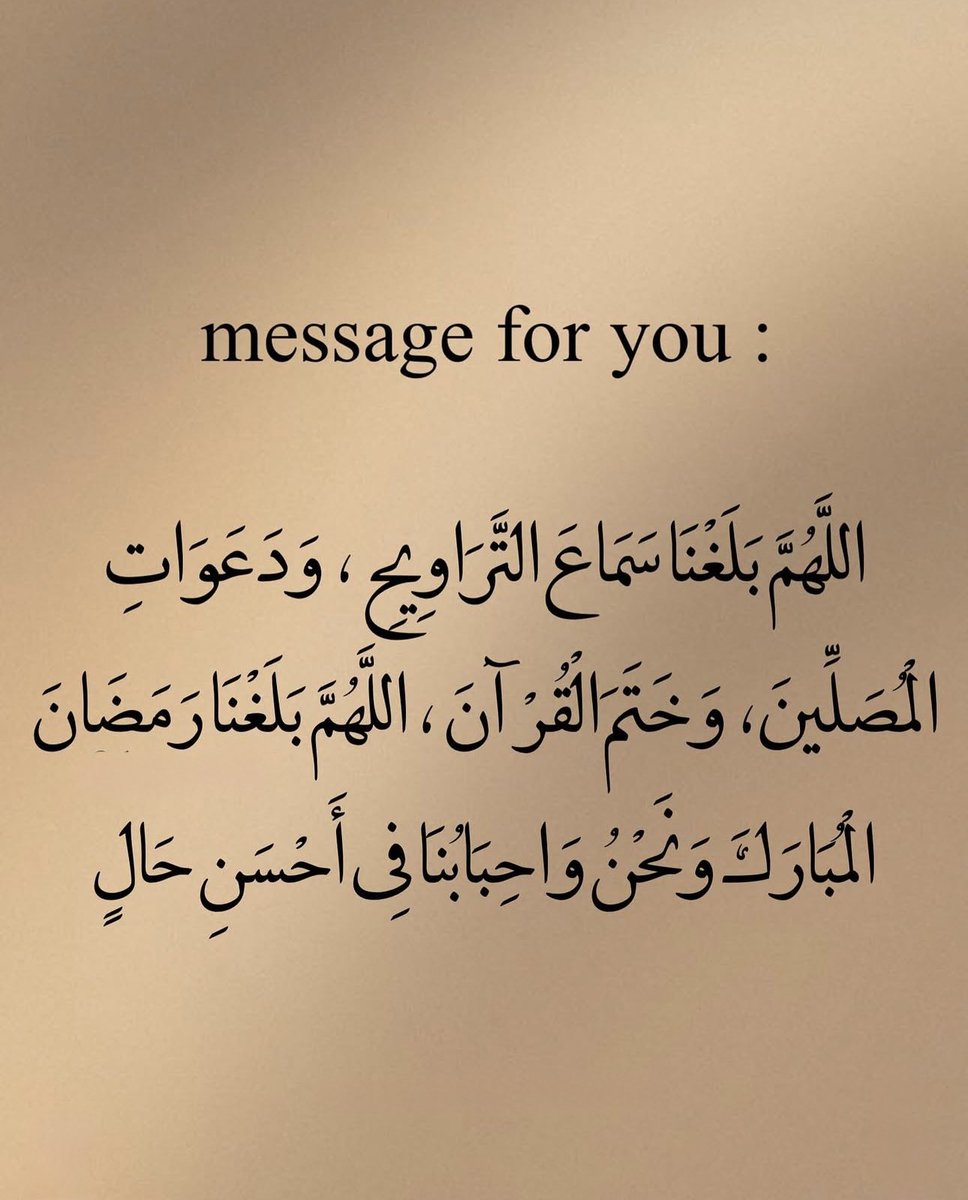 message for you :
اللَّهُمَّ بَلَغْنَا سَمَاعَ التَّرَاوِيحِ ، وَدَعَوَاتِ
الْمُصَلِّينَ، وَخَتَمَ الْقُرْآنَ ، اللَّهُمَّ بَلَغْنَا رَمَضَانَ
الْمُبَارَكَ وَنَحْنُ وَاحِبَابُنَا فِي أَحْسَنِ حَالٍ